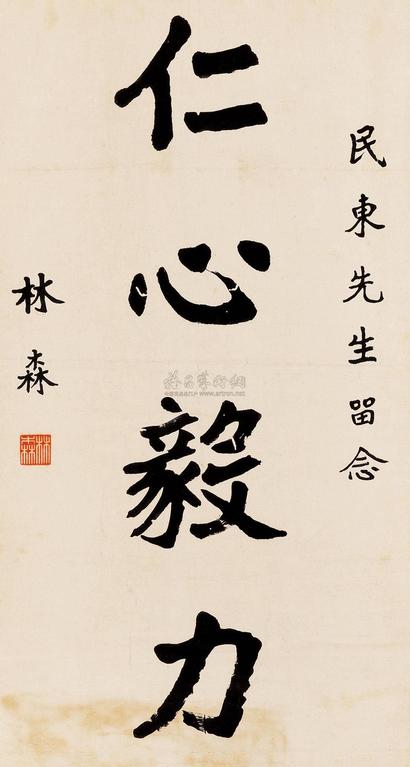 民東先生留念
仁心毅力
林森
林森
雅昌藝術網
www.artron.net